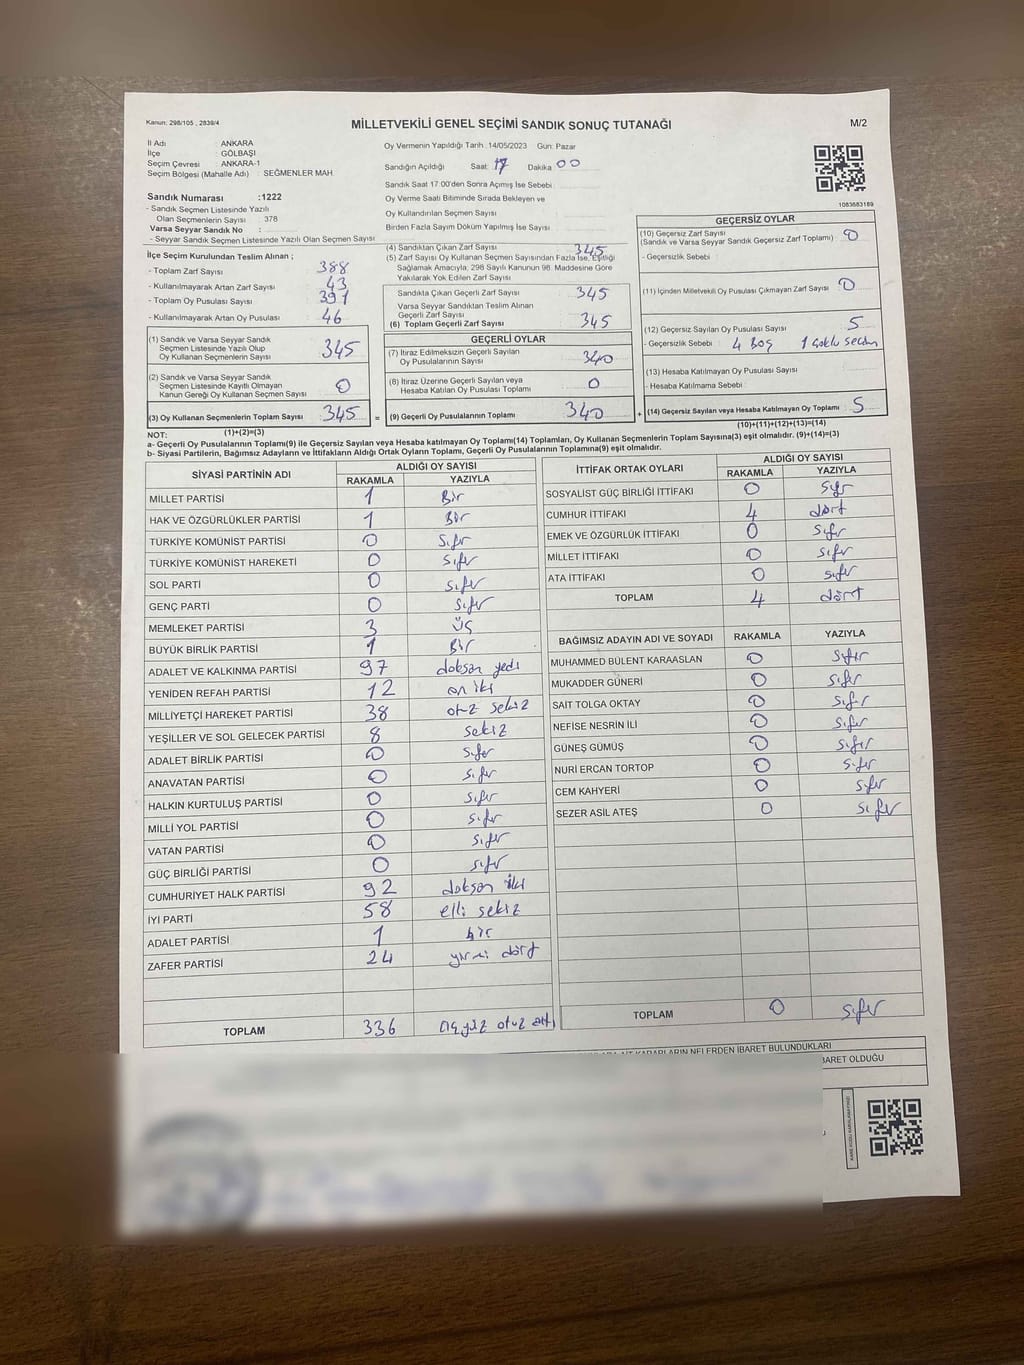 Kanun: 298/105 , 2839/4
MİLLETVEKİLİ GENEL SEÇİMİ SANDIK SONUÇ TUTANAĞI
M/2
İl Adı : ANKARA
İlçe : GÖLBAŞI
Seçim Çevresi : ANKARA-1
Seçim Bölgesi (Mahalle Adı) : SEĞMENLER MAH.
Oy Vermenin Yapıldığı Tarih :14/05/2023 Gün: Pazar
Sandığın Açıldığı Saat: 17 Dakika 00
Sandık Saat 17:00'den Sonra Açımış İse Sebebi :
Oy Verme Saati Bitiminde Sırada Bekleyen ve
Oy Kullandırılan Seçmen Sayısı
Birden Fazla Sayım Döküm Yapılmış İse Sayısı :
1083683169
Sandık Numarası :1222
- Sandık Seçmen Listesinde Yazılı
Olan Seçmenlerin Sayısı : 378
Varsa Seyyar Sandık No :
- Seyyar Sandık Seçmen Listesinde Yazılı Olan Seçmen Sayısı :
İlçe Seçim Kurulundan Teslim Alınan ;
- Toplam Zarf Sayısı 388
- Kullanılmayarak Artan Zarf Sayısı 43
- Toplam Oy Pusulası Sayısı 391
- Kullanılmayarak Artan Oy Pusulası 46
(1) Sandık ve Varsa Seyyar Sandık
Seçmen Listesinde Yazılı Olup
Oy Kullanan Seçmenlerin Sayısı 345
(2) Sandık ve Varsa Seyyar Sandık
Seçmen Listesinde Kayıtlı Olmayan
Kanun Gereği Oy Kullanan Seçmen Sayısı 0
(3) Oy Kullanan Seçmenlerin Toplam Sayısı 345 =
(1)+(2)=(3)
(4) Sandıktan Çıkan Zarf Sayısı 345
(5) Zarf Sayısı Oy Kullanan Seçmen Sayısından Fazla İse, Eşitliği
Sağlamak Amacıyla, 298 Sayılı Kanunun 98. Maddesine Göre
Yakılarak Yok Edilen Zarf Sayısı
Sandıkta Çıkan Geçerli Zarf Sayısı 345
Varsa Seyyar Sandıktan Teslim Alınan
Geçerli Zarf Sayısı
(6) Toplam Geçerli Zarf Sayısı 345
GEÇERLİ OYLAR
(7) İtiraz Edilmeksizin Geçerli Sayılan
Oy Pusulalarının Sayısı 340
(8) İtiraz Üzerine Geçerli Sayılan veya
Hesaba Katılan Oy Pusulası Toplamı 0
(9) Geçerli Oy Pusulalarının Toplamı 340 +
GEÇERSİZ OYLAR
(10) Geçersiz Zarf Sayısı
(Sandık ve Varsa Seyyar Sandık Geçersiz Zarf Toplamı) : 0
- Geçersizlik Sebebi :
(11) İçinden Milletvekili Oy Pusulası Çıkmayan Zarf Sayısı : 0
(12) Geçersiz Sayılan Oy Pusulası Sayısı : 5
- Geçersizlik Sebebi : 4 Boş 1 Çoklu seçim
(13) Hesaba Katılmayan Oy Pusulası Sayısı :
- Hesaba Katılmama Sebebi :
(14) Geçersiz Sayılan veya Hesaba Katılmayan Oy Toplamı : 5
(10)+(11)+(12)+(13)=(14)
NOT:
a- Geçerli Oy Pusulalarının Toplamı(9) ile Geçersiz Sayılan veya Hesaba katılmayan Oy Toplamı(14) Toplamları, Oy Kullanan Seçmenlerin Toplam Sayısına(3) eşit olmalıdır. (9)+(14)=(3)
b- Siyasi Partilerin, Bağımsız Adayların ve İttifakların Aldığı Ortak Oyların Toplamı, Geçerli Oy Pusulalarının Toplamına(9) eşit olmalıdır.
SİYASİ PARTİNİN ADI ALDIĞI OY SAYISI
RAKAMLA YAZIYLA
MİLLET PARTİSİ 1 Bir
HAK VE ÖZGÜRLÜKLER PARTİSİ 1 Bir
TÜRKİYE KOMÜNİST PARTİSİ 0 sıfır
TÜRKİYE KOMÜNİST HAREKETİ 0 sıfır
SOL PARTİ 0 sıfır
GENÇ PARTİ 0 sıfır
MEMLEKET PARTİSİ 3 üç
BÜYÜK BİRLİK PARTİSİ 1 Bir
ADALET VE KALKINMA PARTİSİ 97 doksan yedi
YENİDEN REFAH PARTİSİ 12 on iki
MİLLİYETÇİ HAREKET PARTİSİ 38 otuz sekiz
YEŞİLLER VE SOL GELECEK PARTİSİ 8 sekiz
ADALET BİRLİK PARTİSİ 0 sıfır
ANAVATAN PARTİSİ 0 sıfır
HALKIN KURTULUŞ PARTİSİ 0 sıfır
MİLLİ YOL PARTİSİ 0 sıfır
VATAN PARTİSİ 0 sıfır
GÜÇ BİRLİĞİ PARTİSİ 0 sıfır
CUMHURİYET HALK PARTİSİ 92 doksan iki
İYİ PARTİ 58 elli sekiz
ADALET PARTİSİ 1 bir
ZAFER PARTİSİ 24 yirmi dört
TOPLAM 336 üçyüz otuz altı
İTTİFAK ORTAK OYLARI ALDIĞI OY SAYISI
RAKAMLA YAZIYLA
SOSYALİST GÜÇ BİRLİĞİ İTTİFAKI 0 sıfır
CUMHUR İTTİFAKI 4 dört
EMEK VE ÖZGÜRLÜK İTTİFAKI 0 sıfır
MİLLET İTTİFAKI 0 sıfır
ATA İTTİFAKI 0 sıfır
TOPLAM 4 dört
BAĞIMSIZ ADAYIN ADI VE SOYADI RAKAMLA YAZIYLA
MUHAMMED BÜLENT KARAASLAN 0 sıfır
MUKADDER GÜNERİ 0 sıfır
SAİT TOLGA OKTAY 0 sıfır
NEFİSE NESRİN İLİ 0 sıfır
GÜNEŞ GÜMÜŞ 0 sıfır
NURİ ERCAN TORTOP 0 sıfır
CEM KAHYERİ 0 sıfır
SEZER ASİL ATEŞ 0 sıfır
TOPLAM 0 sıfır
KARARLARIN NELERDEN İBARET BULUNDUKLARI
BARET OLDUĞU